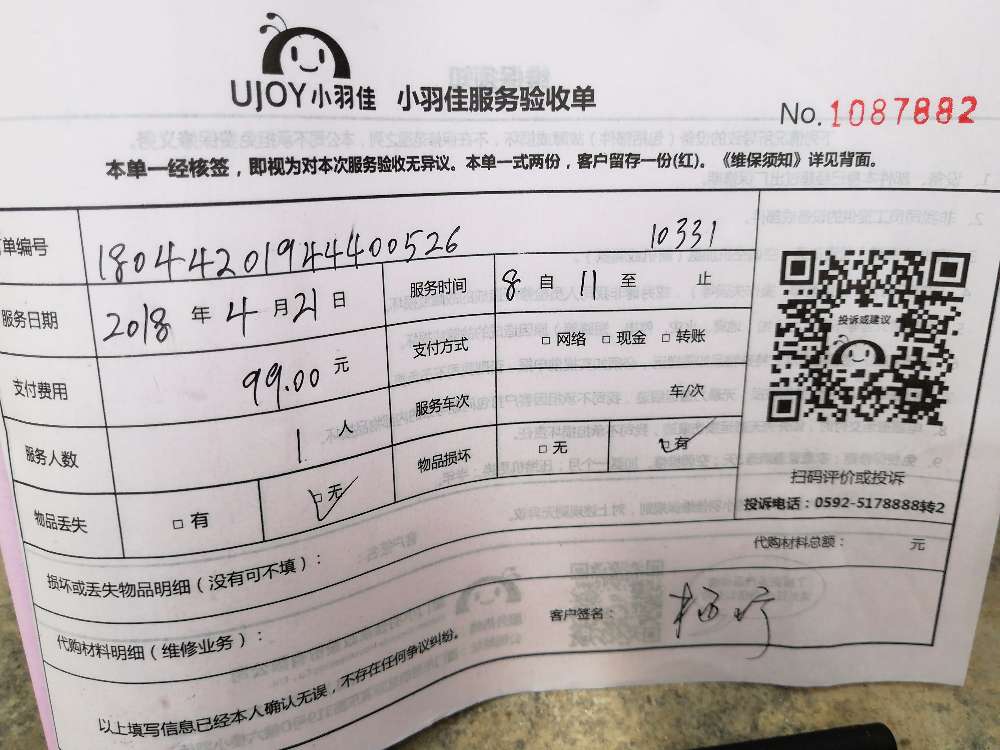 UJOY小羽佳 小羽佳服务验收单
No. 1087882
本单一经核签，即视为对本次服务验收无异议。本单一式两份，客户留存一份(红)。《维保须知》详见背面。
单编号 18044201944400526 10331
服务日期 2018 年 4 月 21 日 服务时间 8 自 11 至 止
支付费用 99.00 元 支付方式 □ 网络 □ 现金 □ 转账
服务人数 1. 人 服务车次 车/次
物品丢失 □ 有 □ 无 物品损坏 □ 无 □ 有
投诉或建议
扫码评价或投诉
投诉电话：0592-5178888转2
损坏或丢失物品明细（没有可不填）：
代购材料总额： 元
代购材料明细（维修业务）：
客户签名：
以上填写信息已经本人确认无误，不存在任何争议纠纷。